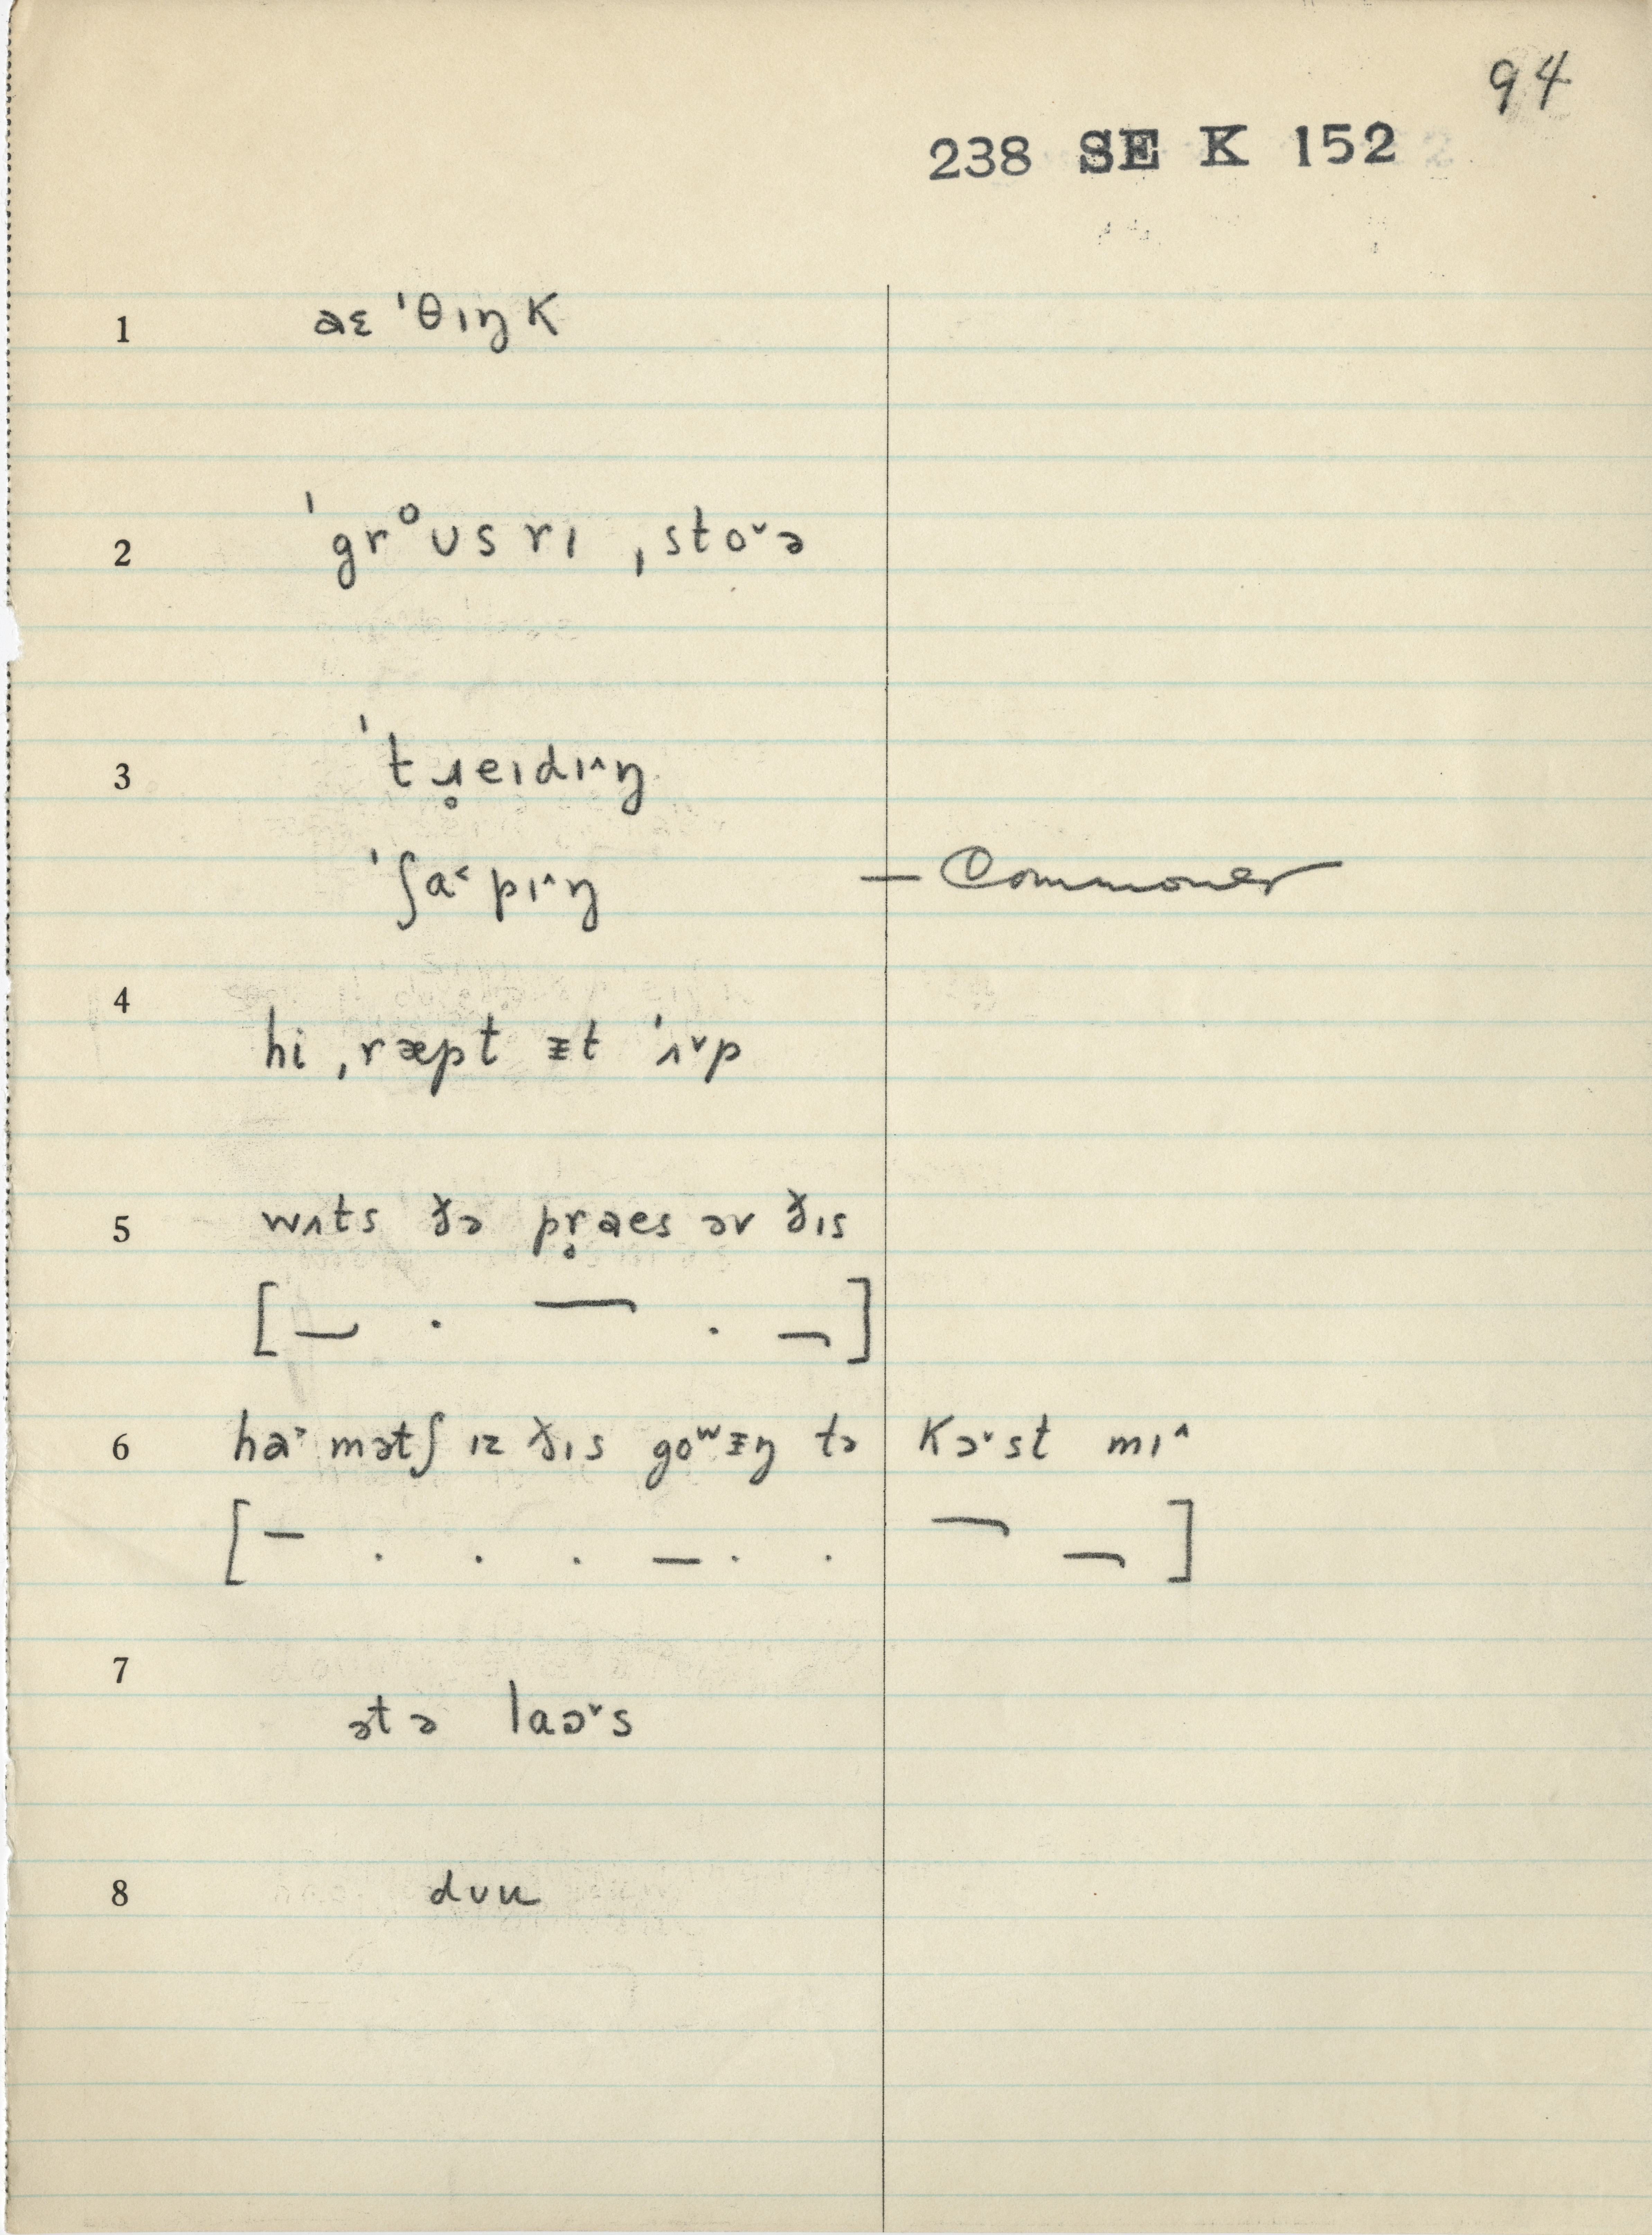 94
238 SE K 152
1 aɛ ˈθɪŋk
2 ˈgrᵒʊsrɪ ˌstoˇə
3 ˈtɹ̥eɪdɪ^ŋ
ˈʃa˂pɪ^ŋ — Commoner
4 hi ˌræpt ᵻt ˈʌˇp
5 wʌts ðə pr̥aes əv ðɪs
[ — . — . — ]
6 ha˃ mətʃ ɪz ðɪs goʷᵻŋ tə kɔˇst mɪ^
[ — . . . — . . — — ]
7 ətə laɔˇs
8 dʊu